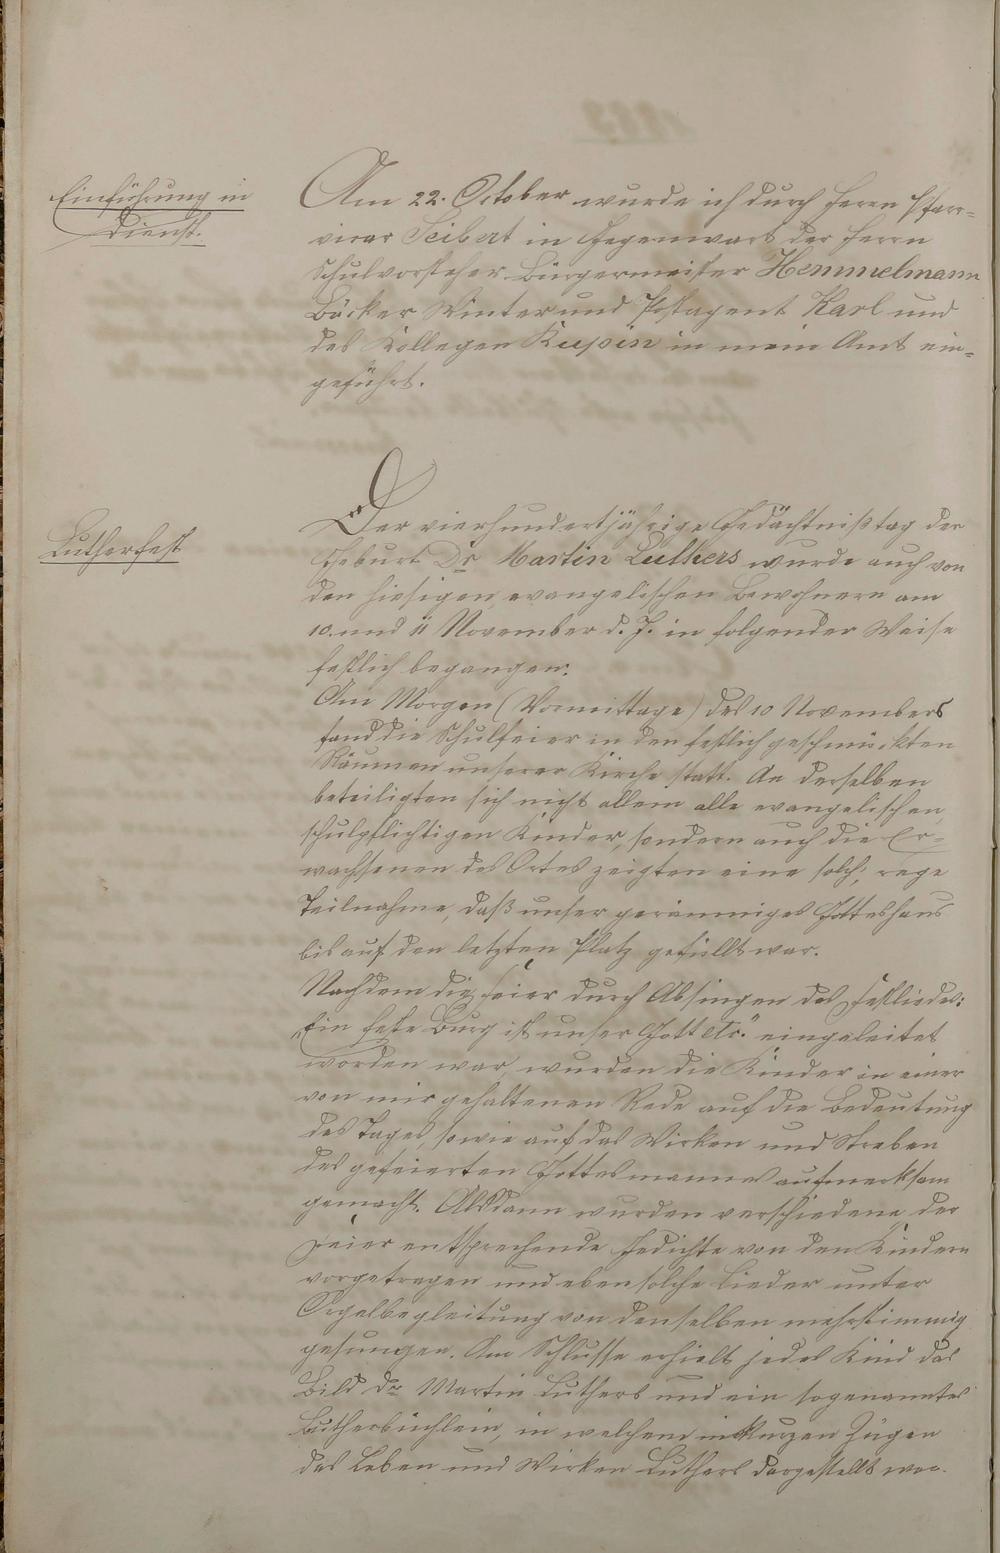 Einführung in
Dienst.
Am 22. October wurde ich durch Herrn Pfarr-
vicar Seibert in Gegenwart der Herrn
Schulvorsteher Bürgermeister Hemmelmann
Bäcker Winter und Postagent Karl und
des Kollegen Kupin in mein Amt ein-
geführt.
Lutherfest
Der vierhundertjährige Gedächtnißtag der
Geburt Dr Martin Luthers wurde auch von
den hiesigen evangelischen Bewohnern am
10. und 11 November d. J. in folgender Weise
festlich begangen:
Am Morgen (Vormittage) des 10 Novembers
fand die Schulfeier in den festlich geschmückten
Räumen unserer Kirche statt. An derselben
beteiligten sich nicht allein alle evangelischen,
schulpflichtigen Kinder, sondern auch die Er-
wachsenen des Ortes zeigten eine solch, rege
Teilnahme, daß unser geräumiges Gotteshaus
bis auf den letzten Platz gefüllt war.
Nachdem die Feier durch Absingen des Festliedes:
„Ein feste Burg ist unser Gott etc." eingeleitet
worden war, wurden die Kinder in einer
von mir gehaltenen Rede auf die Bedeutung
des Tages, sowie auf das Wirken und Streben
des gefeierten Gottesmannes aufmerksam
gemacht. Alsdann wurden verschiedene der
Feier entsprechende Gedichte von den Kindern
vorgetragen und ebensolche Lieder unter
Orgelbegleitung von denselben mehrstimmig
gesungen. Am Schlusse erhielt jedes Kind das
Bild Dr Martin Luthers und ein sogenanntes
Lutherbüchlein, in welchem in kurzen Zügen
das Leben und Wirken Luthers dargestellt war.